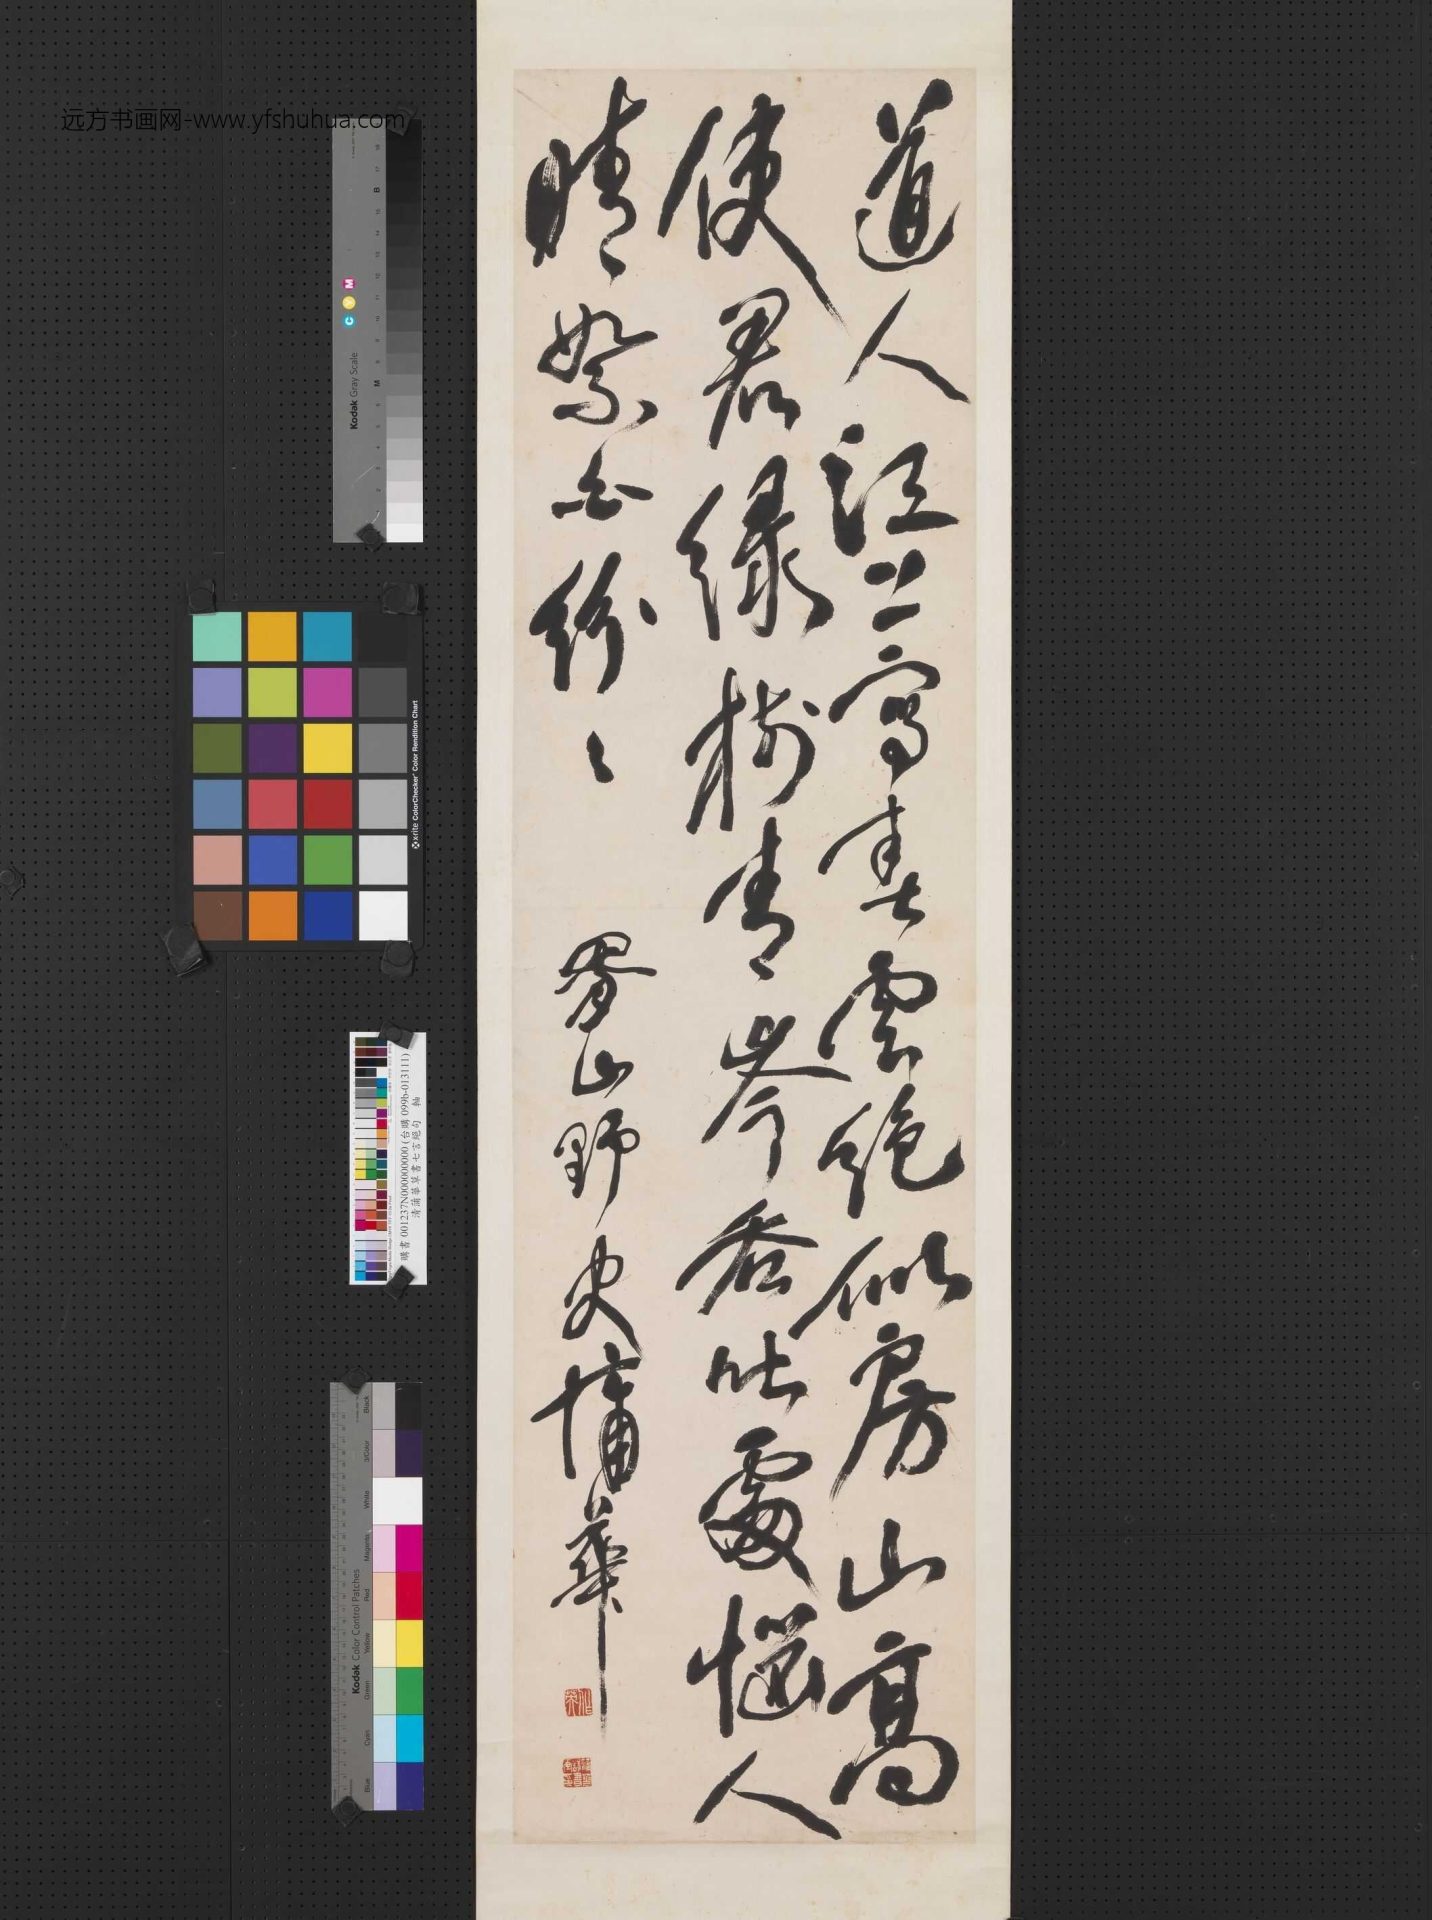 道人江上寫春雲絕似房山高
使君綠樹青岑吞吐處惱人
晴絮白紛々
胥山野史蒲華
作英
远方书画网-www.yfshuhua.com
Kodak Gray Scale
C Y M
B
M
x-rite ColorChecker Color Rendition Chart
購書 001237N000000000 (台購 099b-013111)
清蒲華草書七言絕句 軸
Kodak Color Control Patches
Black
3/Color
White
Magenta
Red
Yellow
Green
Cyan
Blue